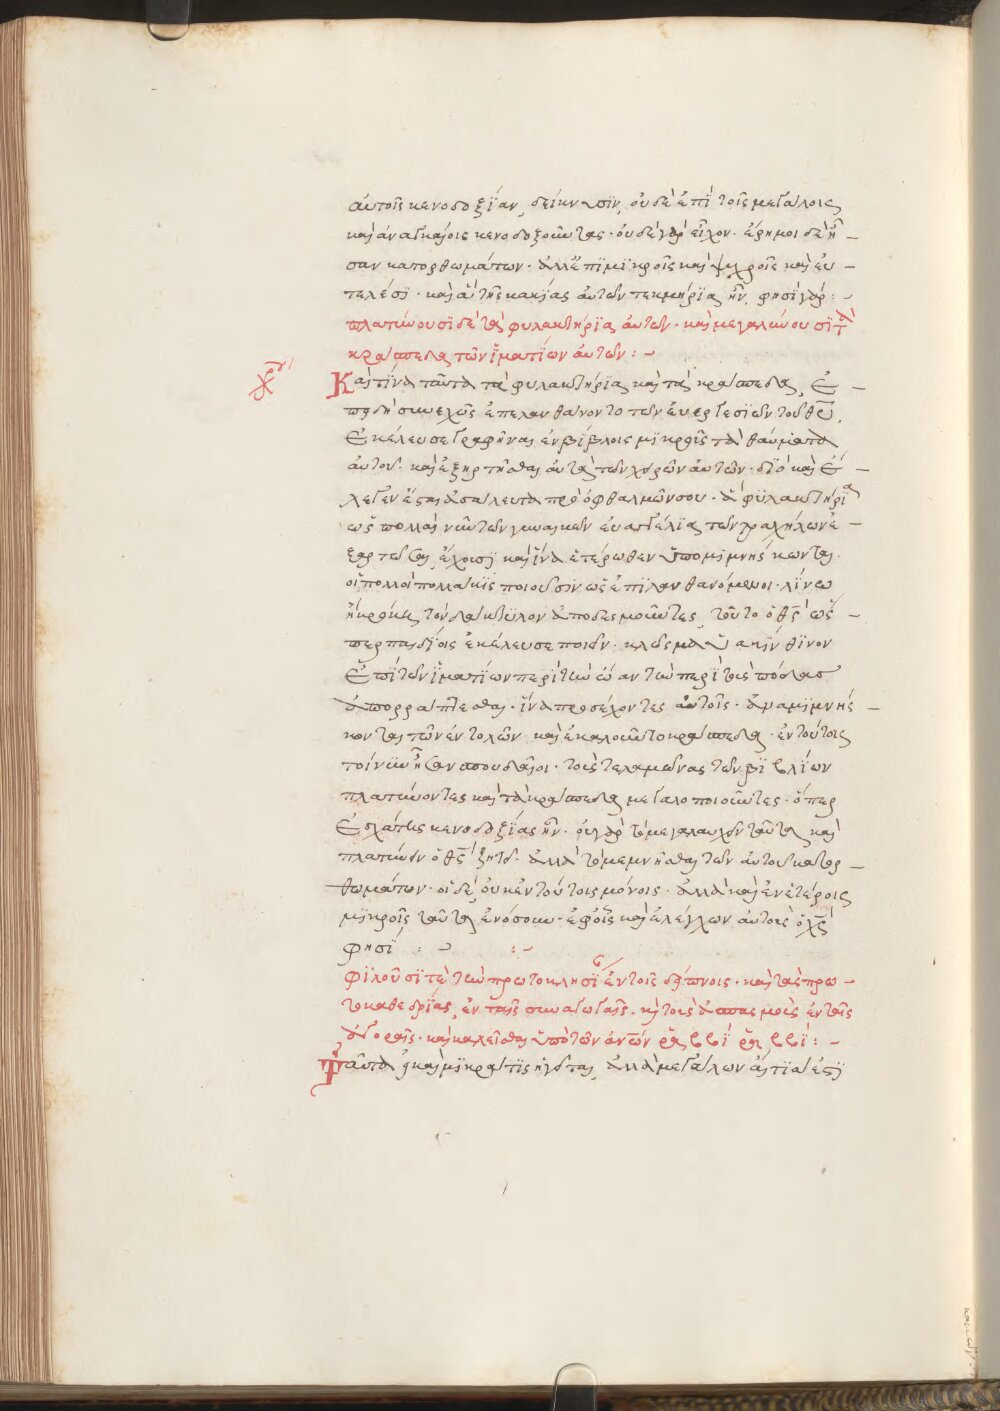 αὐτοῖς κενοδοξίαν, δείκνυσιν, οὐδὲ ἐπὶ τοῖς μεγάλοις
καὶ ἀναγκαίοις κενοδοξοῦντας · οὐδὲ γὰρ εἶχον · ἔρημοι δὲ ἦ –
σαν κατορθωμάτων · ἀλλ' ἐπὶ μικροῖς καὶ ψυχροῖς καὶ εὐ –
τελέσι · καὶ ἃ τῆς κακίας αὐτῶν τεκμήρια ἦν, φησὶ γάρ : –
πλατύνουσι δὲ τὰ φυλακτήρια αὐτῶν · καὶ μεγαλύνουσι τὰ
κράσπεδα τῶν ἱματίων αὐτῶν : –
Καὶ τίνα ταῦτα τὰ φυλακτήρια καὶ τὰ κράσπεδα, ἐ –
πειδὴ συνεχῶς ἐπελανθάνοντο τῶν εὐεργεσιῶν τοῦ θῦ,
ἐκέλευσε γραφῆναι ἐν βίβλοις μικροῖς τὰ θαύματα
αὐτοῦ · καὶ ἐξηρτῆσθαι αὐτὰ τῶν χειρῶν αὐτῶν · διὸ καὶ ἔ –
λεγεν ἔσται ἀσάλευτα πρὸ ὀφθαλμῶν σου · ἃ φυλακτήρια
ὡς πολλαὶ νῦν τῶν γυναικῶν εὐαγγέλια τῶν τραχήλων ἐ –
ξαρτῶσαι ἔχουσι καὶ ἵνα ἑτέρωθεν ὑπομιμνήσκωνται ·
οἱ πολλοὶ πολλάκις ποιοῦσιν ὡς ἐπιλανθανόμενοι · λίνῳ
ἢ κρόκῃ τὸν δάκτυλον ἀποδεσμοῦντες, τοῦτο ὁ θς ὡς –
περ παιδίοις ἐκέλευσε ποιεῖν · κλῶσμα ὑακίνθινον
ἐπὶ τῶν ἱματίων περὶ τὴν ὤαν τὴν περὶ τοὺς πόδας
ἀπορράπτεσθαι · ἵνα προσέχοντες αὐτοῖς · ἀναμιμνήσ –
κονται τῶν ἐντολῶν · καὶ ἐκαλοῦντο κράσπεδα · ἐν τούτοις
τοίνυν ἦσαν σπουδαῖοι · τοὺς τελαμῶνας τῶν βιβλίων
πλατύνοντες καὶ τὰ κράσπεδα μεγαλοποιοῦντες · ὅπερ
ἐσχάτης κενοδοξίας ἦν · οὐ γὰρ τὸ μεγαλαυχεῖν ταῦτα καὶ
πλατύνειν ὁ θς ἐζήτει · ἀλλὰ τὸ μεμνῆσθαι τῶν αὐτοῦ κατορ –
θωμάτων · οἱ δὲ, οὐκ ἐν τούτοις μόνοις · ἀλλὰ καὶ ἐν ἑτέροις
μικροῖς ταῦτα ἐνόσουν · ἐφ' οἷς καὶ ἐλέγχων αὐτοὺς ὁ χς
φησί : – : –
φιλοῦσί τε τὴν πρωτοκλησίαν ἐν τοῖς δείπνοις · καὶ τὰς πρω –
τοκαθεδρίας, ἐν ταῖς συναγωγαῖς · κὶ τοὺς ἀσπασμοὺς ἐν ταῖς
ἀγοραῖς · καὶ καλεῖσθαι ὑπὸ τῶν ἀνων ῥαββὶ ῥαββί : –
Ταῦτα εἰ καὶ μικρά τις ἡγεῖται, ἀλλὰ μεγάλων αἴτια ἐστὶ